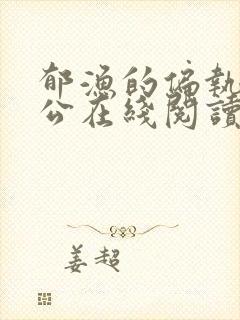 郁漁的偏執
公在綫閱讀
姜超